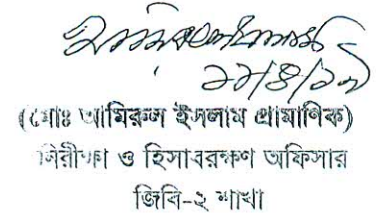 ১১/৪/১৩
(মোঃ আমিরুল ইসলাম প্রামাণিক)
নিরীক্ষা ও হিসাবরক্ষণ অফিসার
জিবি-২ শাখা